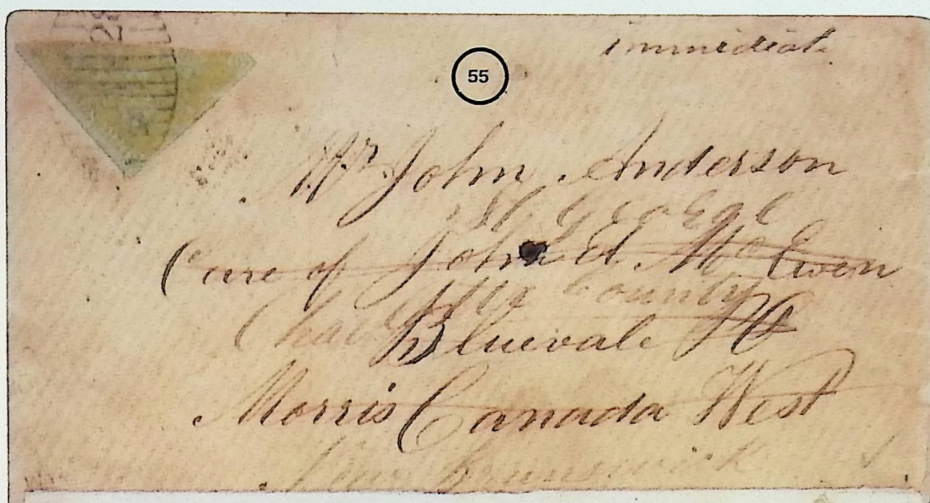 immediate
55
Mr. John Anderson
St George
Care of John A. McEwen
Charlotte County
Bluevale PO
Morris Canada West
New Brunswick